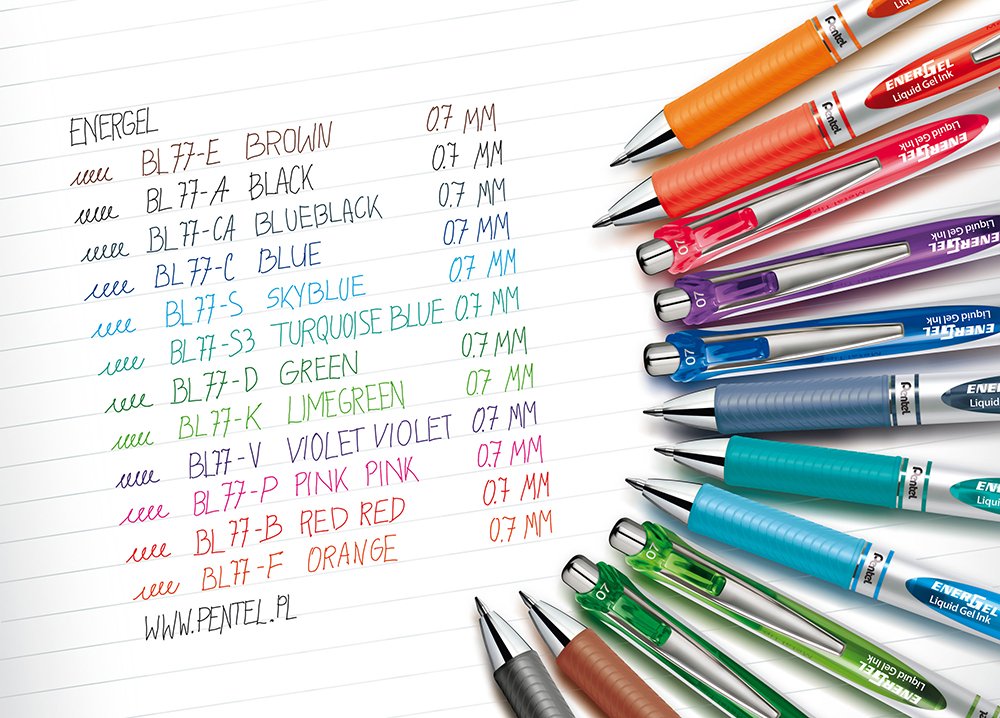 ENERGEL
BL77-E BROWN 0.7 MM
BL77-A BLACK 0.7 MM
BL77-CA BLUEBLACK 0.7 MM
BL77-C BLUE 0.7 MM
BL77-S SKYBLUE 0.7 MM
BL77-S3 TURQUOISE BLUE 0.7 MM
BL77-D GREEN 0.7 MM
BL77-K LIMEGREEN 0.7 MM
BL77-V VIOLET VIOLET 0.7 MM
BL77-P PINK PINK 0.7 MM
BL77-B RED RED 0.7 MM
BL77-F ORANGE 0.7 MM
WWW.PENTEL.PL
Pentel
Liquid Gel Ink
Pentel
ENERGEL
Liquid Gel Ink
07
ENERGEL
Liquid Gel Ink
07
ENERGEL
Liquid Gel Ink
07
ENERGEL
Liquid Gel Ink
Pentel
ENERGE
Liquid
Pentel
ENE
Liq
Pentel
ENERGEL
Liquid Gel Ink
07
ENERGEL
Liquid Gel Ink
07